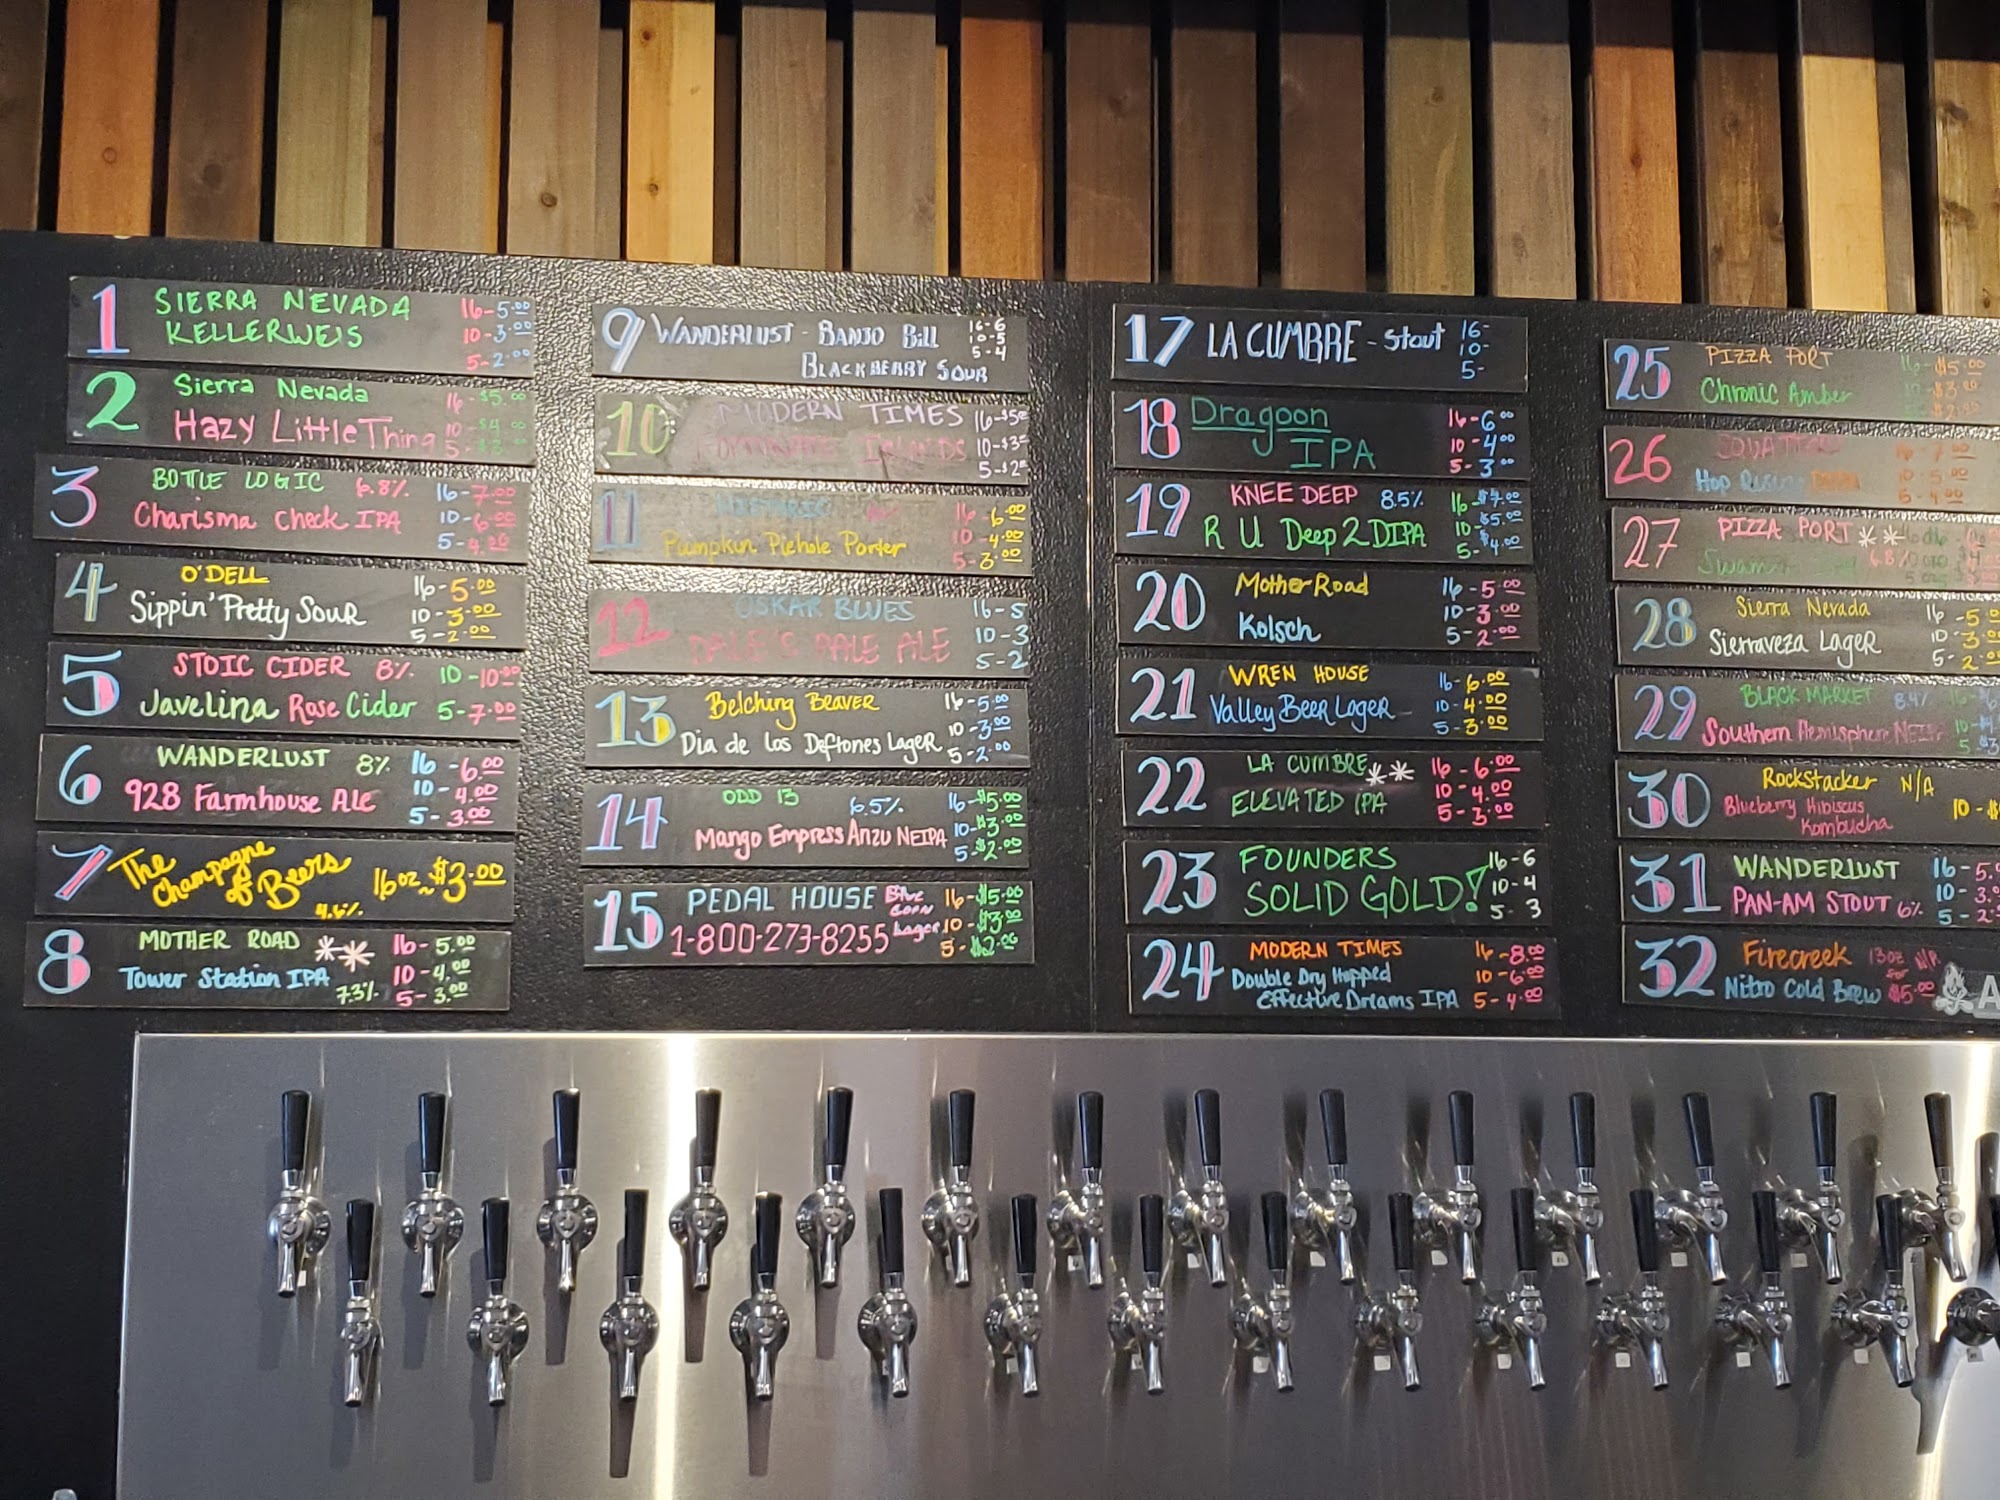 1 SIERRA NEVADA 16-5.00
KELLERWEIS 10-3.00
5-2.00
2 Sierra Nevada 16-$5.00
Hazy Little Thing 10-$4
5-$3
3 BOTLE LOGIC 6.8% 16-7.00
Charisma Check IPA 10-6.00
5-4.00
4 O'DELL 16-5.00
Sippin' Pretty Sour 10-3.00
5-2.00
5 STOIC CIDER 8% 10-10.00
Javelina Rose Cider 5-7.00
6 WANDERLUST 8% 16-6.00
928 Farmhouse Ale 10-4.00
5-3.00
7 The Champagne of Beers 16oz~$3.00
4.6%
8 MOTHER ROAD ** 16-5.00
Tower Station IPA 10-4.00
7.3% 5-3.00
9 WANDERLUST - BANJO Bill 16-6
10-5
5-4
BLACKBERRY SOUR
10 MODERN TIMES 16-$5
10-$3
5-$2
11 16-6.00
Pumpkin Piehole Porter 10-4.00
5-3.00
12 OSKAR BLUES 16-5
DALE'S PALE ALE 10-3
5-2
13 Belching Beaver 16-5.00
Dia de los Deftones Lager 10-3.00
5-2.00
14 ODD 13 6.5% 16-$5.00
Mango Empress Anzu NEIPA 10-$3.00
5-$2.00
15 PEDAL HOUSE Blue Corn Lager 16-$5.00
1-800-273-8255 10-$3.00
5-$2.00
17 LA CUMBRE - Stout 16-
10-
5-
18 Dragoon 16-6.00
IPA 10-4.00
5-3.00
19 KNEE DEEP 8.5% 16-$7.00
R U Deep 2 DIPA 10-$5.00
5-$4.00
20 Mother Road 16-5.00
Kolsch 10-3.00
5-2.00
21 WREN HOUSE 16-6.00
Valley Beer Lager 10-4.00
5-3.00
22 LA CUMBRE ** 16-6.00
ELEVATED IPA 10-4.00
5-3.00
23 FOUNDERS 16-6
SOLID GOLD! 10-4
5-3
24 MODERN TIMES 16-8.00
Double Dry Hopped 10-6.00
Effective Dreams IPA 5-4.00
25 PIZZA PORT 16-$5.00
Chronic Amber $3.00
$2.00
26
Hop Rising 10-5.00
5-4.00
27 PIZZA PORT **
6.8%
28 Sierra Nevada 16-5.0
Sierraveza Lager 10-3.0
5-2.0
29 BLACK MARKET 8.4%
Southern Hemisphere NEIPA
30 Rockstacker N/A
Blueberry Hibiscus 10-
Kombucha
31 WANDERLUST 16-5.
PAN-AM STOUT 6% 10-3.
5-2.
32 Firecreek 13oz N/A
for
Nitro Cold Brew $5.00